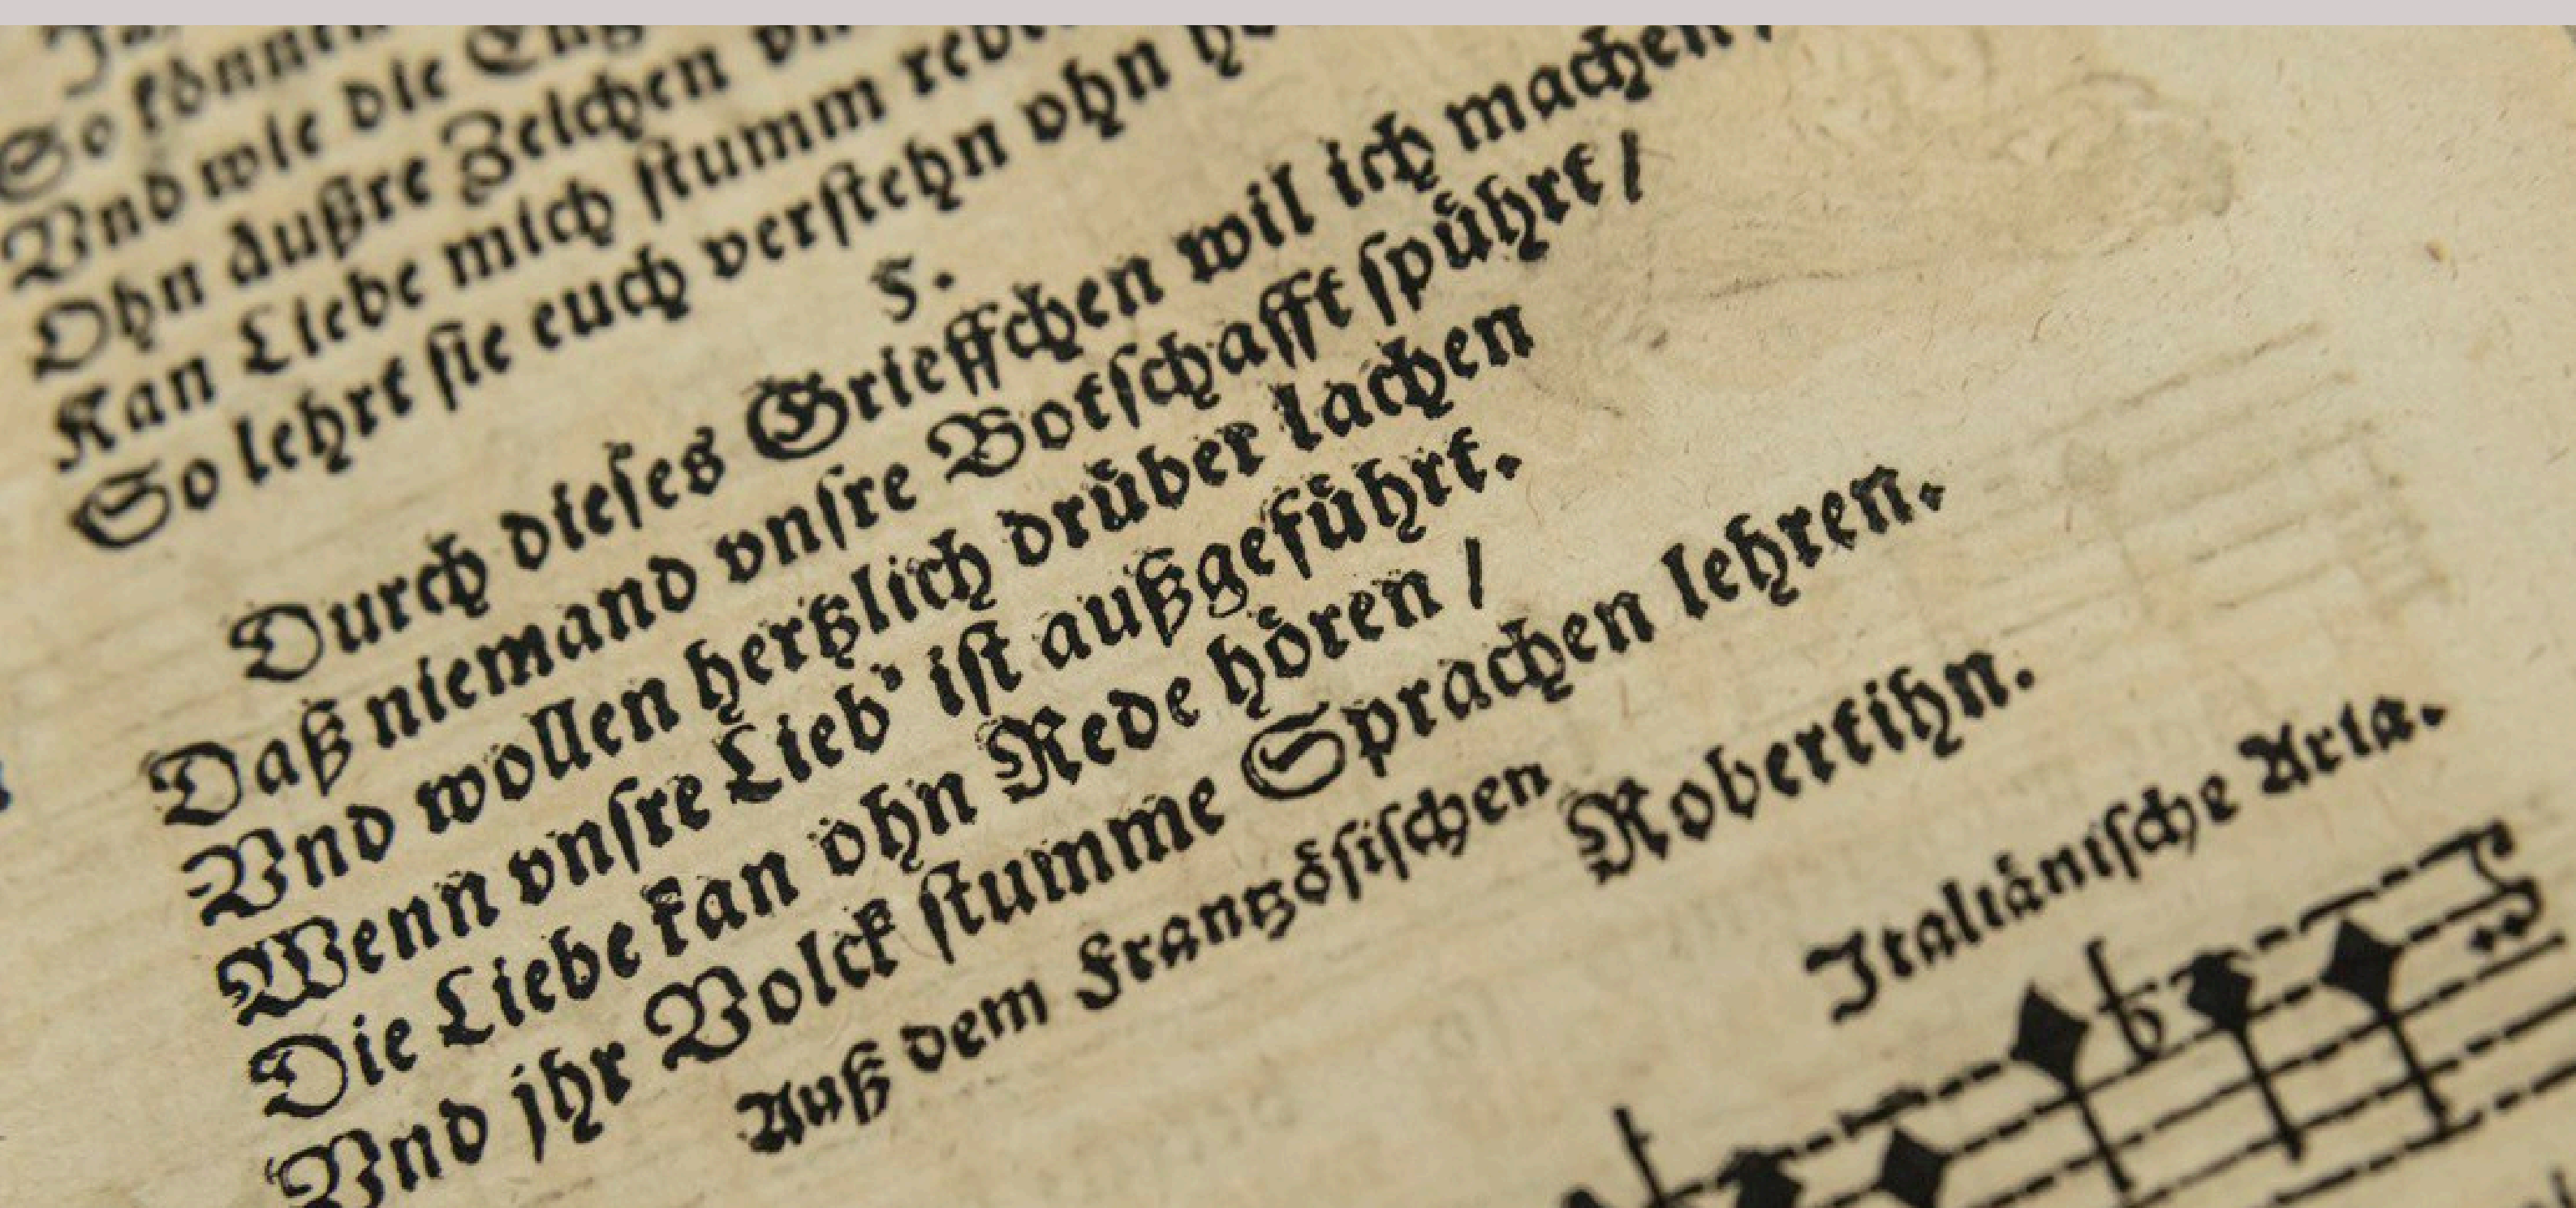 So könnten
Vnd wie die
Ohn äußre Zeichen
Kan Liebe mich stumm
So lehrt sie euch verstehn ohn
5.
Durch dieses Grieffchen wil ich machen /
Daß niemand vnsre Botschafft spührt /
Vnd wollen hertzlich drüber lachen
Wenn vnsre Lieb' ist außgeführt.
Die Liebe kan ohn Rede hören /
Vnd jhr Volck stumme Sprachen lehren.
Auß dem Frantzösischen
Robertihn.
Italiänische Aria.